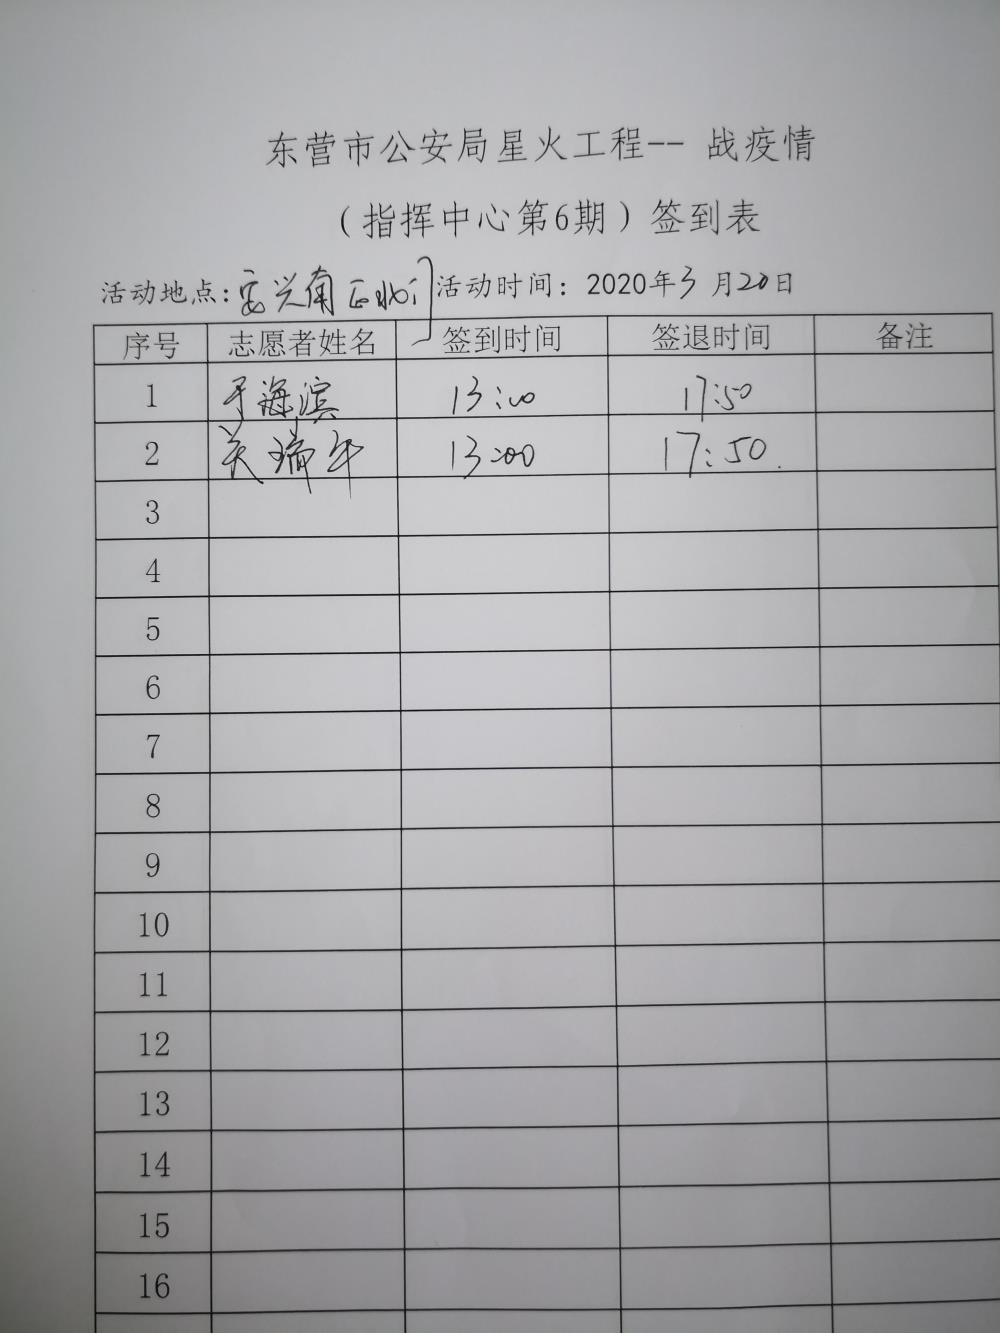 东营市公安局星火工程-- 战疫情
（指挥中心第6期）签到表
活动地点:安兴南区北门 活动时间: 2020年3月20日
序号 志愿者姓名 签到时间 签退时间 备注
1 于海滨 13:00 17:50
2 关瑞年 13:00 17:50
3
4
5
6
7
8
9
10
11
12
13
14
15
16